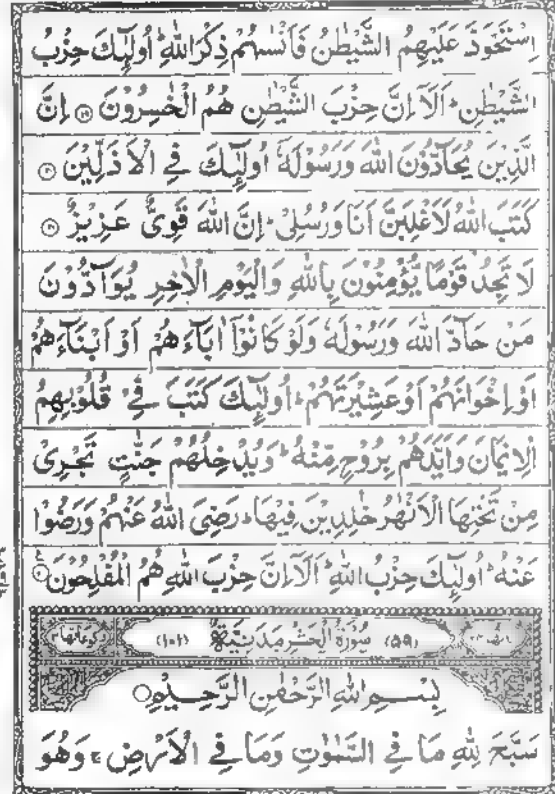 اِسْتَحْوَذَ عَلَيْهِمُ الشَّيْطٰنُ فَاَنْسٰىهُمْ ذِكْرَ اللّٰهِ ؕ اُولٰٓئِكَ حِزْبُ
الشَّيْطٰنِ ؕ اَلَاۤ اِنَّ حِزْبَ الشَّيْطٰنِ هُمُ الْخٰسِرُوْنَ ۝۱۹ اِنَّ
الَّذِيْنَ يُحَآدُّوْنَ اللّٰهَ وَرَسُوْلَهٗۤ اُولٰٓئِكَ فِي الْاَذَلِّيْنَ ۝۲۰
كَتَبَ اللّٰهُ لَاَغْلِبَنَّ اَنَا وَرُسُلِيْ ؕ اِنَّ اللّٰهَ قَوِيٌّ عَزِيْزٌ ۝۲۱
لَا تَجِدُ قَوْمًا يُّؤْمِنُوْنَ بِاللّٰهِ وَالْيَوْمِ الْاٰخِرِ يُوَآدُّوْنَ
مَنْ حَآدَّ اللّٰهَ وَرَسُوْلَهٗ وَلَوْ كَانُوْۤا اٰبَآءَهُمْ اَوْ اَبْنَآءَهُمْ
اَوْ اِخْوَانَهُمْ اَوْ عَشِيْرَتَهُمْ ؕ اُولٰٓئِكَ كَتَبَ فِيْ قُلُوْبِهِمُ
الْاِيْمَانَ وَاَيَّدَهُمْ بِرُوْحٍ مِّنْهُ ؕ وَيُدْخِلُهُمْ جَنّٰتٍ تَجْرِيْ
مِنْ تَحْتِهَا الْاَنْهٰرُ خٰلِدِيْنَ فِيْهَا ؕ رَضِيَ اللّٰهُ عَنْهُمْ وَرَضُوْا
عَنْهُ ؕ اُولٰٓئِكَ حِزْبُ اللّٰهِ ؕ اَلَاۤ اِنَّ حِزْبَ اللّٰهِ هُمُ الْمُفْلِحُوْنَ ۝۲۲
(۵۹) سُوْرَةُ الْحَشْرِ مَدَنِيَّةٌ (۱۰۱)
بِسْمِ اللّٰهِ الرَّحْمٰنِ الرَّحِيْمِ ۝
سَبَّحَ لِلّٰهِ مَا فِي السَّمٰوٰتِ وَمَا فِي الْاَرْضِ ۚ وَهُوَ